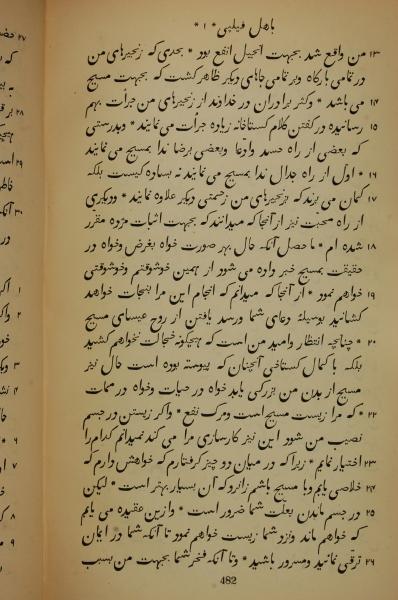 باهل فیلیپی * ۱ *
۱۳ من واقع شد بجهت انجیل انفع بود * بحدی که زنجیرهای من
در تمامی بارگاه و بر تمامی جاهای دیگر ظاهر گشت که بجهت مسیح
۱۴ می باشد * و کثر برادران در خداوند از زنجیرهای من جرأت بهم
۱۵ رسانیده در گفتن کلام گستاخانه زیاده جرأت می نمایند * و بدرستی
که بعضی از راه حسد و ادعا و بعضی برضا ندا بمسیح می نمایند
۱۶ * اول از راه جدال ندا بمسیح می نمایند نه بساوه کیست بلکه
۱۷ گمان می برند که بزنجیرهای من زحمتی دیگر علاوه نمایند * و دیگری
از راه محبت نیز از آنجا که میدانند که بجهت اثبات مژده مقرر
۱۸ شده ام * ما حصل آنکه حال بهر صورت خواه بغرض و خواه در
حقیقت بمسیح خبر داده می شود از همین خوشوقتم و خوشوقتی
۱۹ خواهم نمود * از آنجا که میدانم که انجام این مرا بنجات خواهد
کشانید بوسیلهٔ دعای شما و رسد یافتن از روح عیسای مسیح
۲۰ * چنانچه انتظار و امید من است که هیچگونه خجالت نخواهم کشید
بلکه با کمال گستاخی آنچنان که پیوسته بوده است حال نیز
مسیح از بدن من بزرگی یابد خواه در حیات و خواه در ممات
۲۲ * که مرا زیست مسیح است و مرگ نفع * و اگر زیستن در جسم
نصیب من شود این نیز کارسازی مرا می کند نمیدانم کدام را
۲۳ اختیار نمایم * زیرا که در میان دو چیز گرفتارم که خواهش دارم که
۲۴ خلاصی یابم و با مسیح باشم زانرو که آن بسیار بهتر است * لیکن
۲۵ در جسم ماندن بعلت شما ضرور است * و ازین عقیده می یابم
که خواهم ماند و نزد شما زیست خواهم نمود تا آنکه شما در ایمان
۲۶ ترقی نمائید و مسرور باشید * و تا آنکه فخر شما بجهت من بسبب
482